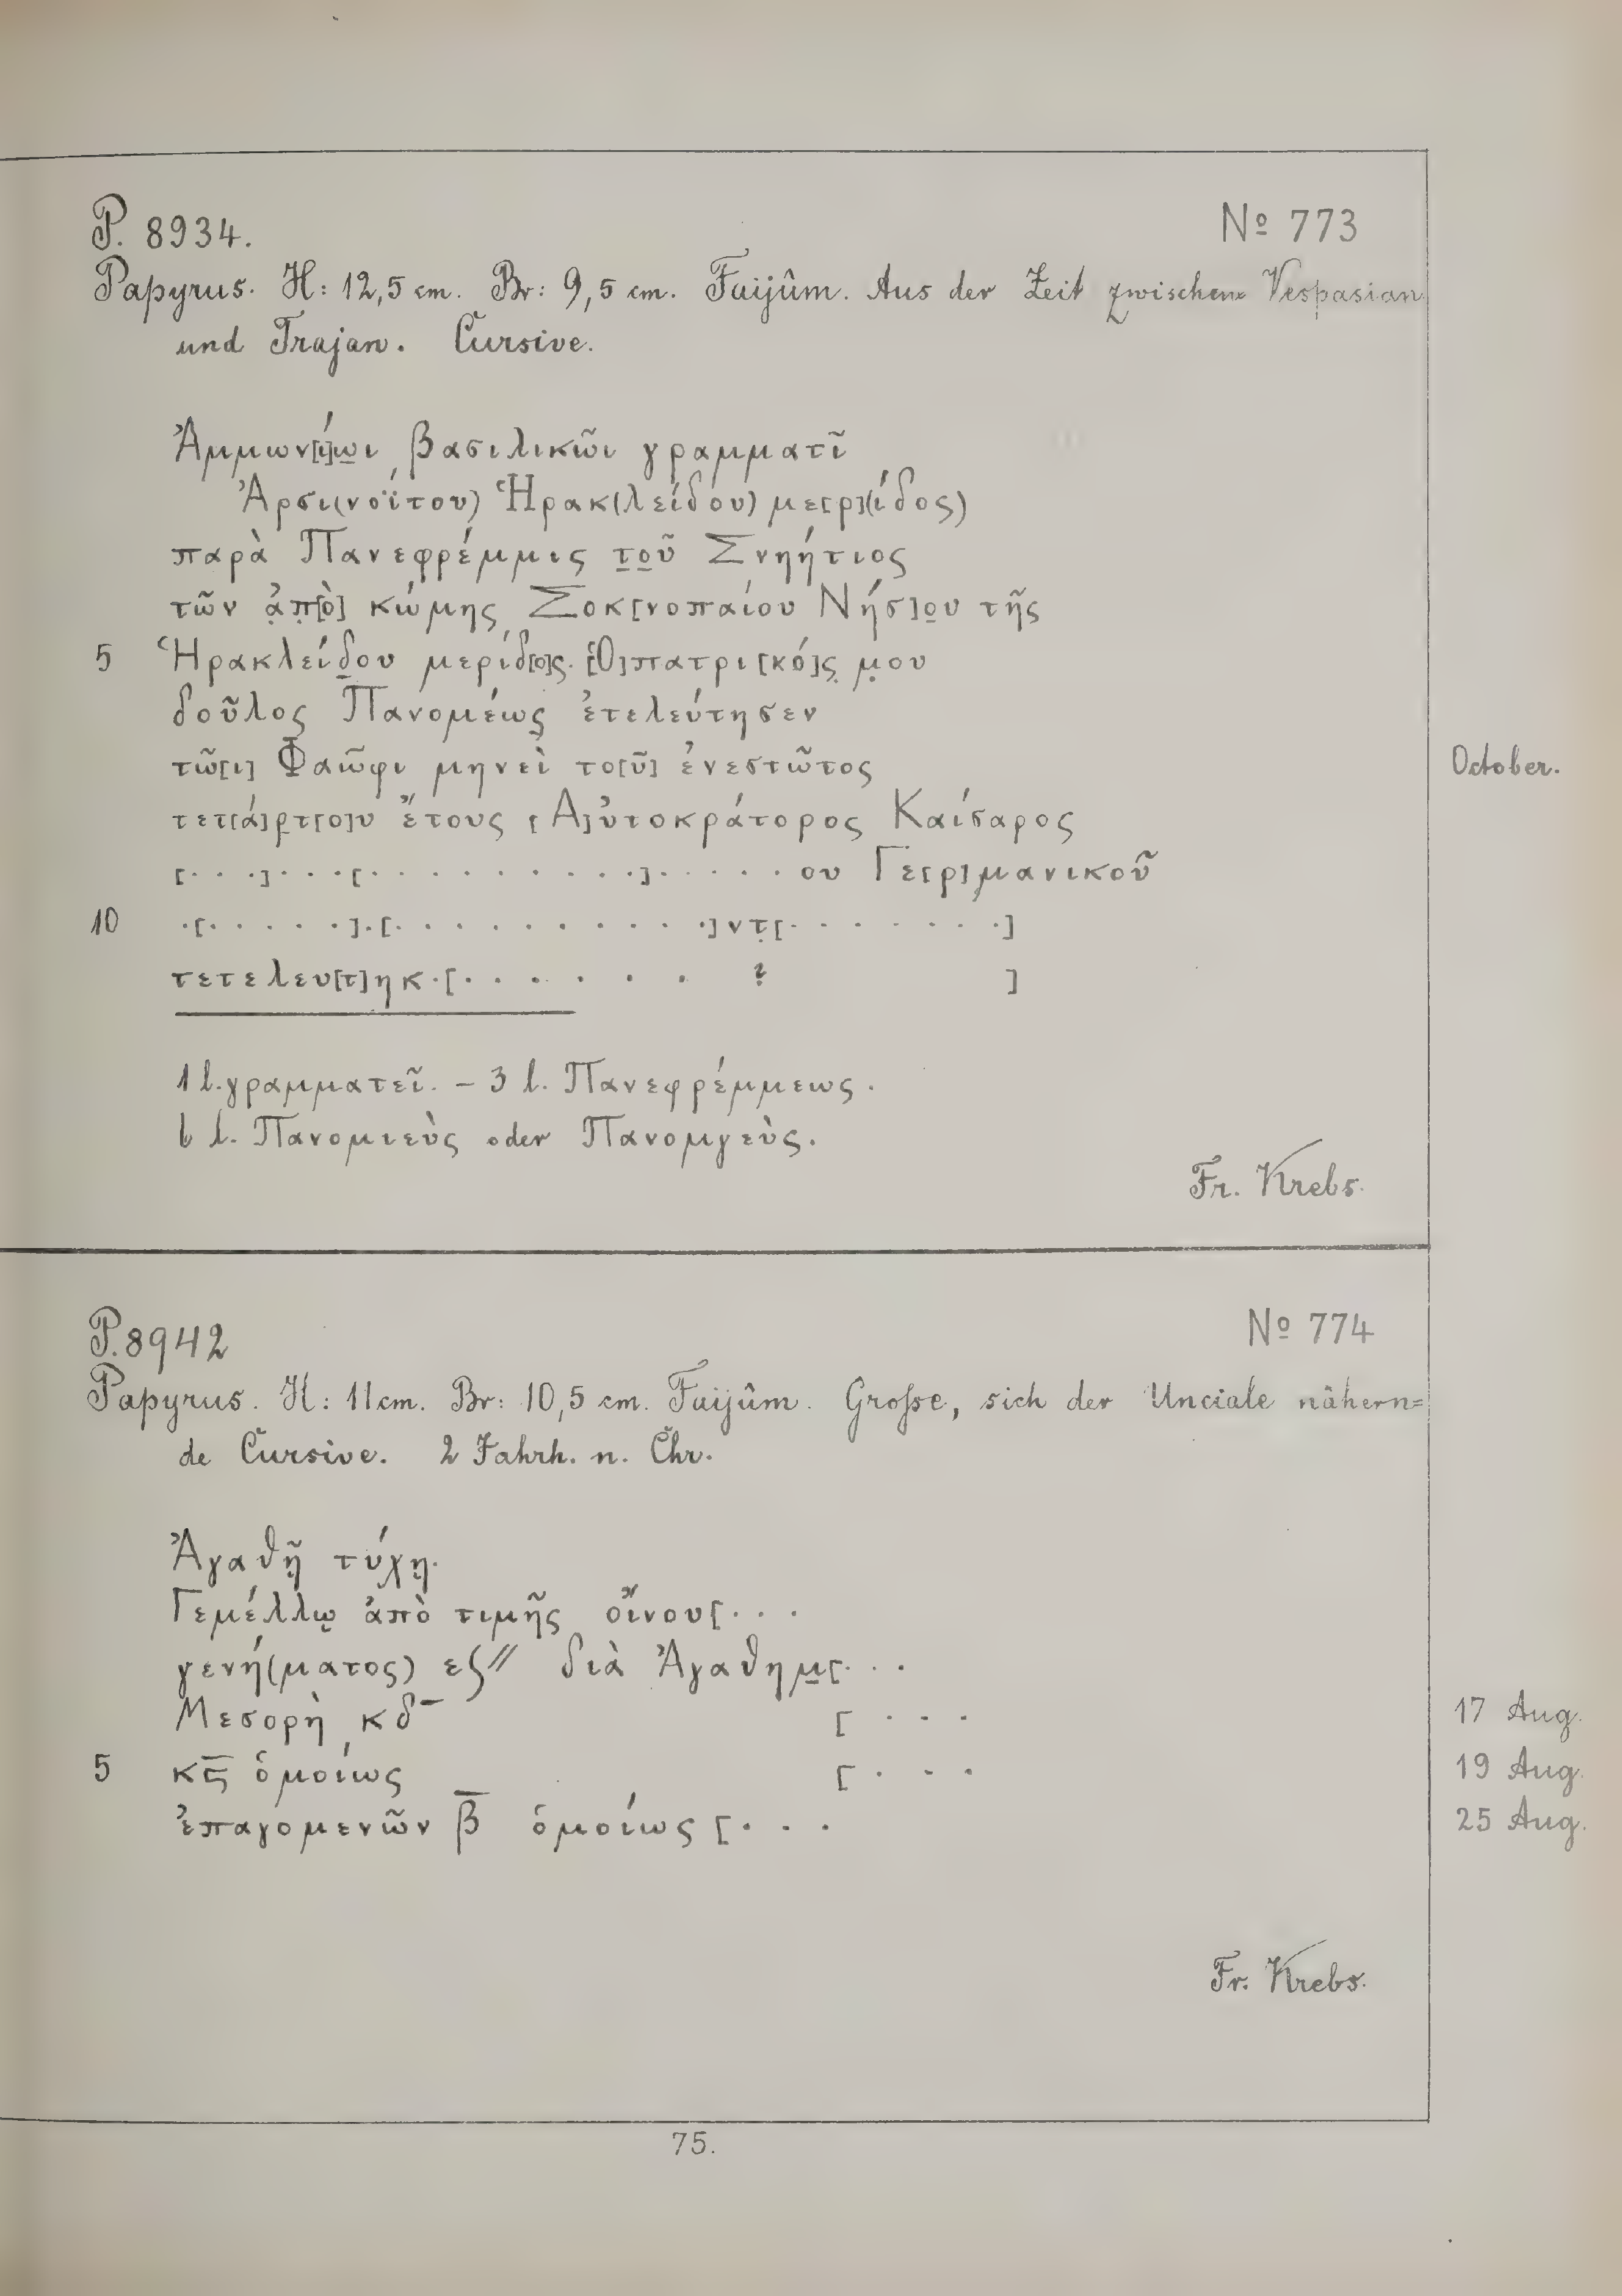 P. 8934. № 773
Papyrus. H: 12,5 cm. Br: 9,5 cm. Faijûm. Aus der Zeit zwischen Vespasian
und Trajan. Cursive.
Ἀμμων[ί]ω̣ι βασιλικῶι γραμματῖ
Ἀρσι(νοΐτου) Ἡρακ(λείδου) με[ρ](ίδος)
παρὰ Πανεφρέμμις τ̣ο̣ῦ Σνηήτιος
τῶν ἀ̣π̣[ὸ] κώμης Σοκ[νοπαίου Νήσ]ο̣υ τῆς
5 Ἡρακλείδ̣ου μερίδ[ο]ς. [Ὁ] πατρι[κό]ς̣ μ̣ου
δοῦλος Πανομέως ἐτελεύτησεν
τῶ[ι] Φαῶφι μηνεὶ το[ῦ] ἐνεστῶτος October.
τετ[ά]ρ̣τ[ο]υ ἔτους [Α]ὐτοκράτορος Καίσαρος
[. . .] . . . [. . . . . . . . . .] . . . . . ου Γε[ρ]μανικοῦ
10 . [. . . . . .] . [. . . . . . . . . . .]ντ̣[. . . . . . .]
τετελευ[τ]ηκ . [. . . . . . ? ]
1 l. γραμματεῖ. – 3 l. Πανεφρέμμεως.
6 l. Πανομιεὺς oder Πανομγεὺς.
Fr. Krebs.
P. 8942 № 774
Papyrus. H: 11 cm. Br: 10,5 cm. Faijûm. Große, sich der Unciale nähern=
de Cursive. 2 Jahrh. n. Chr.
Ἀγαθῇ τύχῃ.
Γεμέλλῳ ἀπὸ τιμῆς οἴνου[. . .
γενή(ματος) εϛ// διὰ Ἀγαθημ̣[. . .
Μεσορὴ κδ̅ [ . . . 17 Aug.
5 κϛ̅ ὁμοίως [ . . . 19 Aug.
ἐπαγομενῶν β̅ ὁμοίως [. . . 25 Aug.
Fr. Krebs.
75.